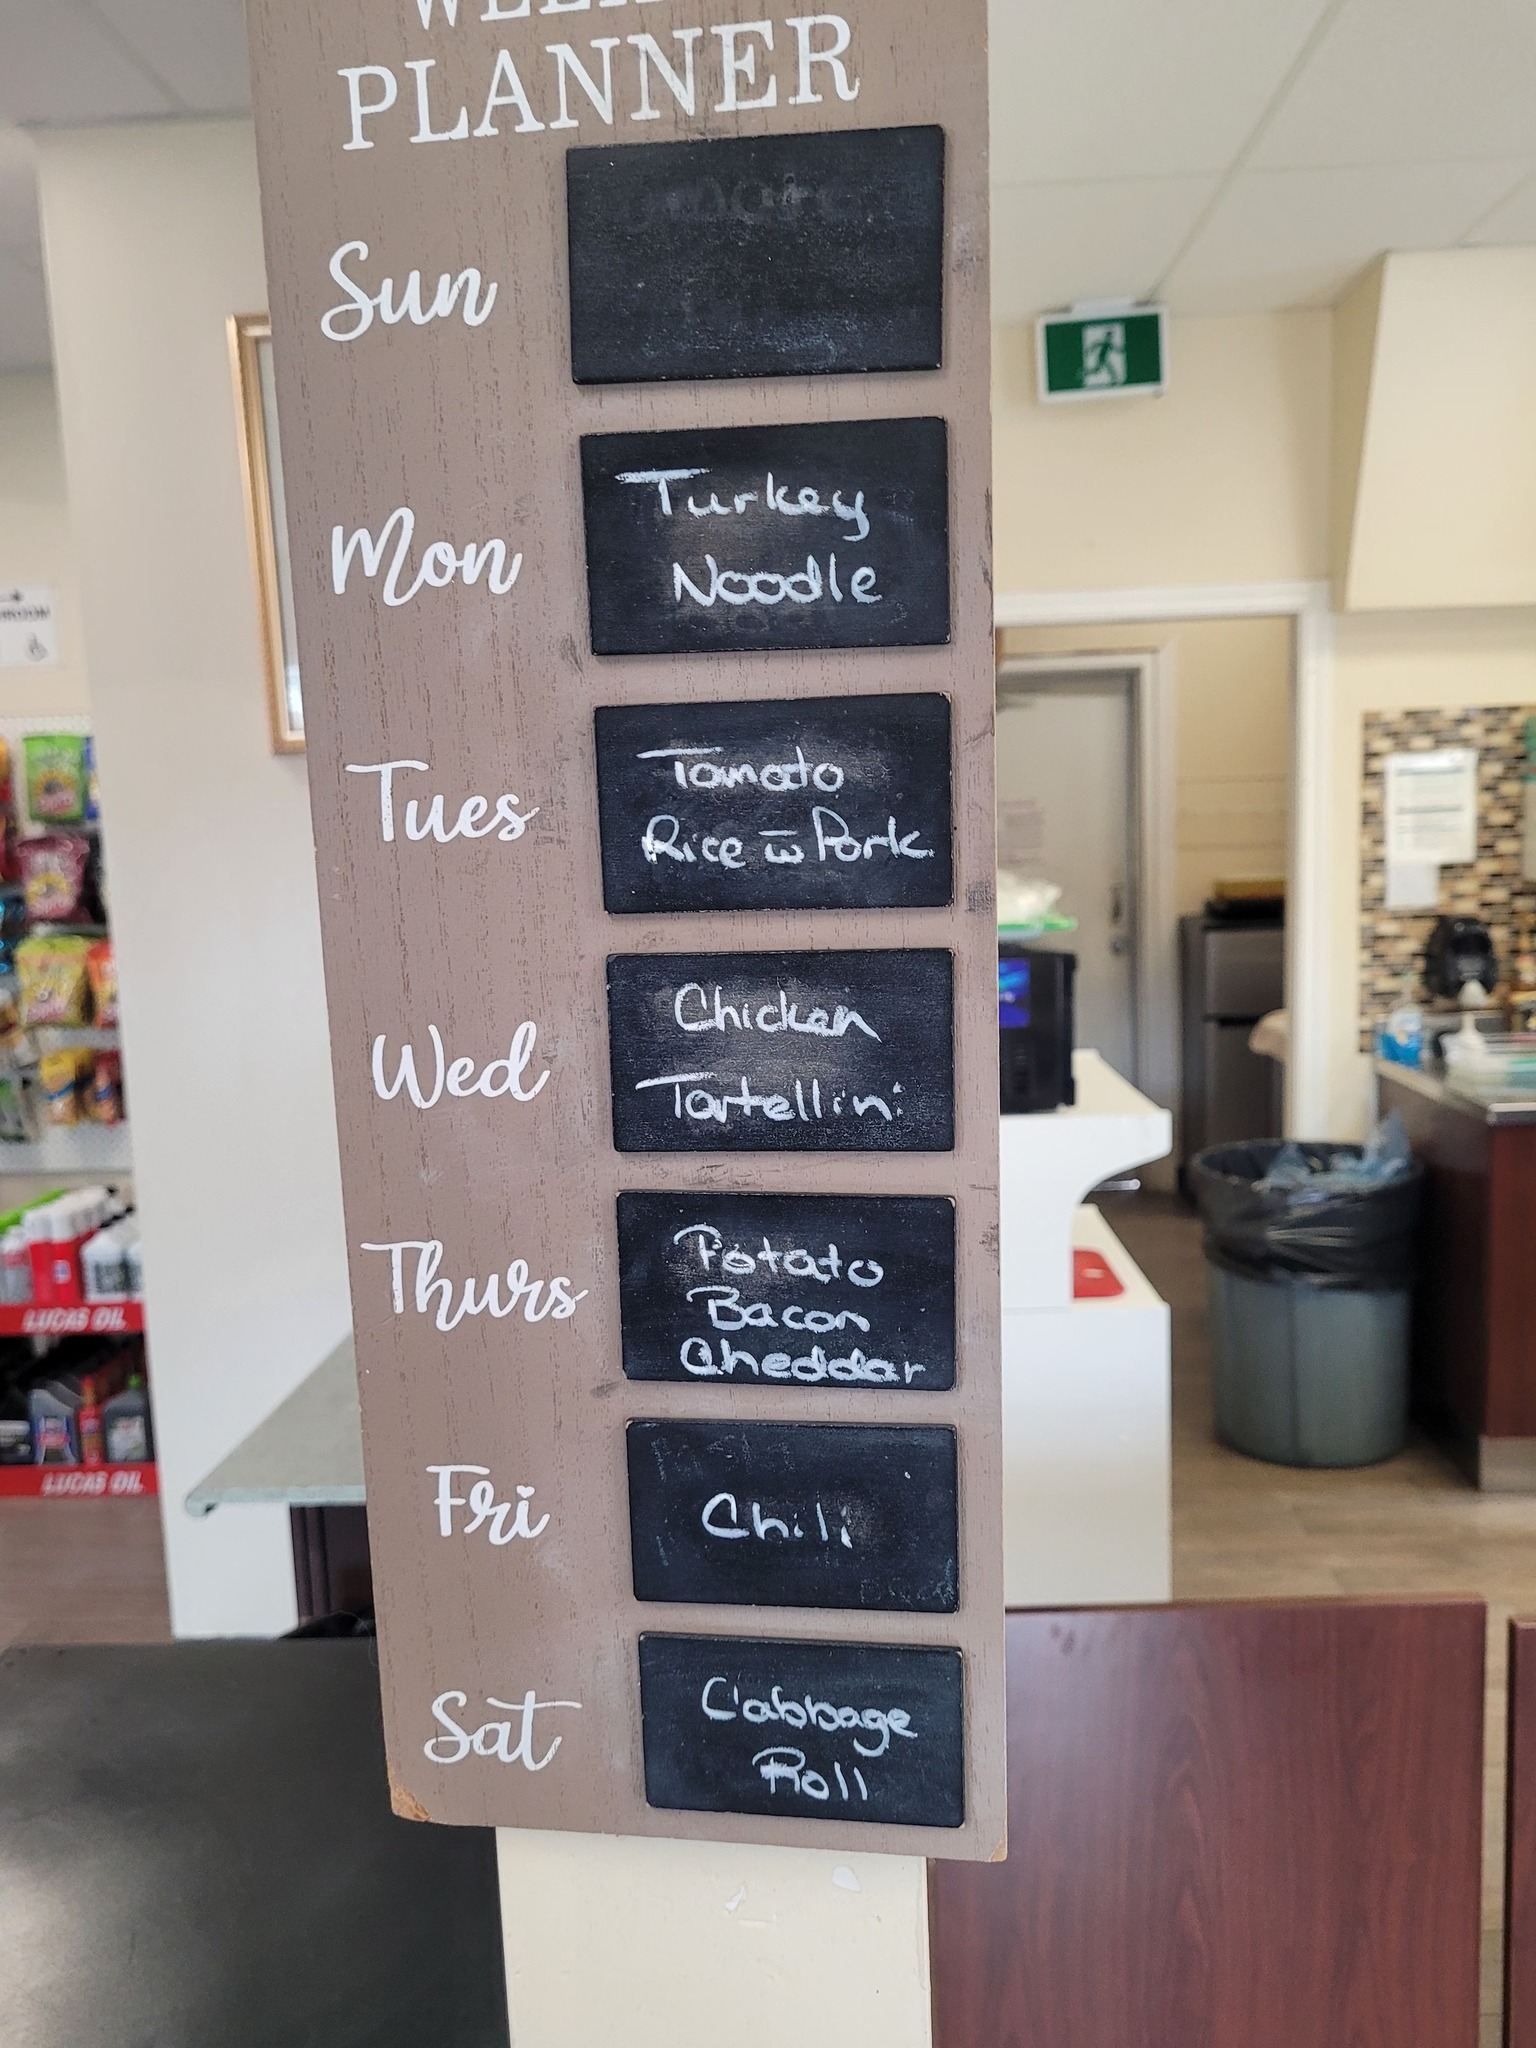 PLANNER
Sun
Mon
Turkey
Noodle
Tues
Tomato
Rice w̅ Pork
Wed
Chicken
Tortellini
Thurs
Potato
Bacon
Cheddar
Fri
Chili
Sat
Cabbage
Roll
LUCAS OIL
LUCAS OIL